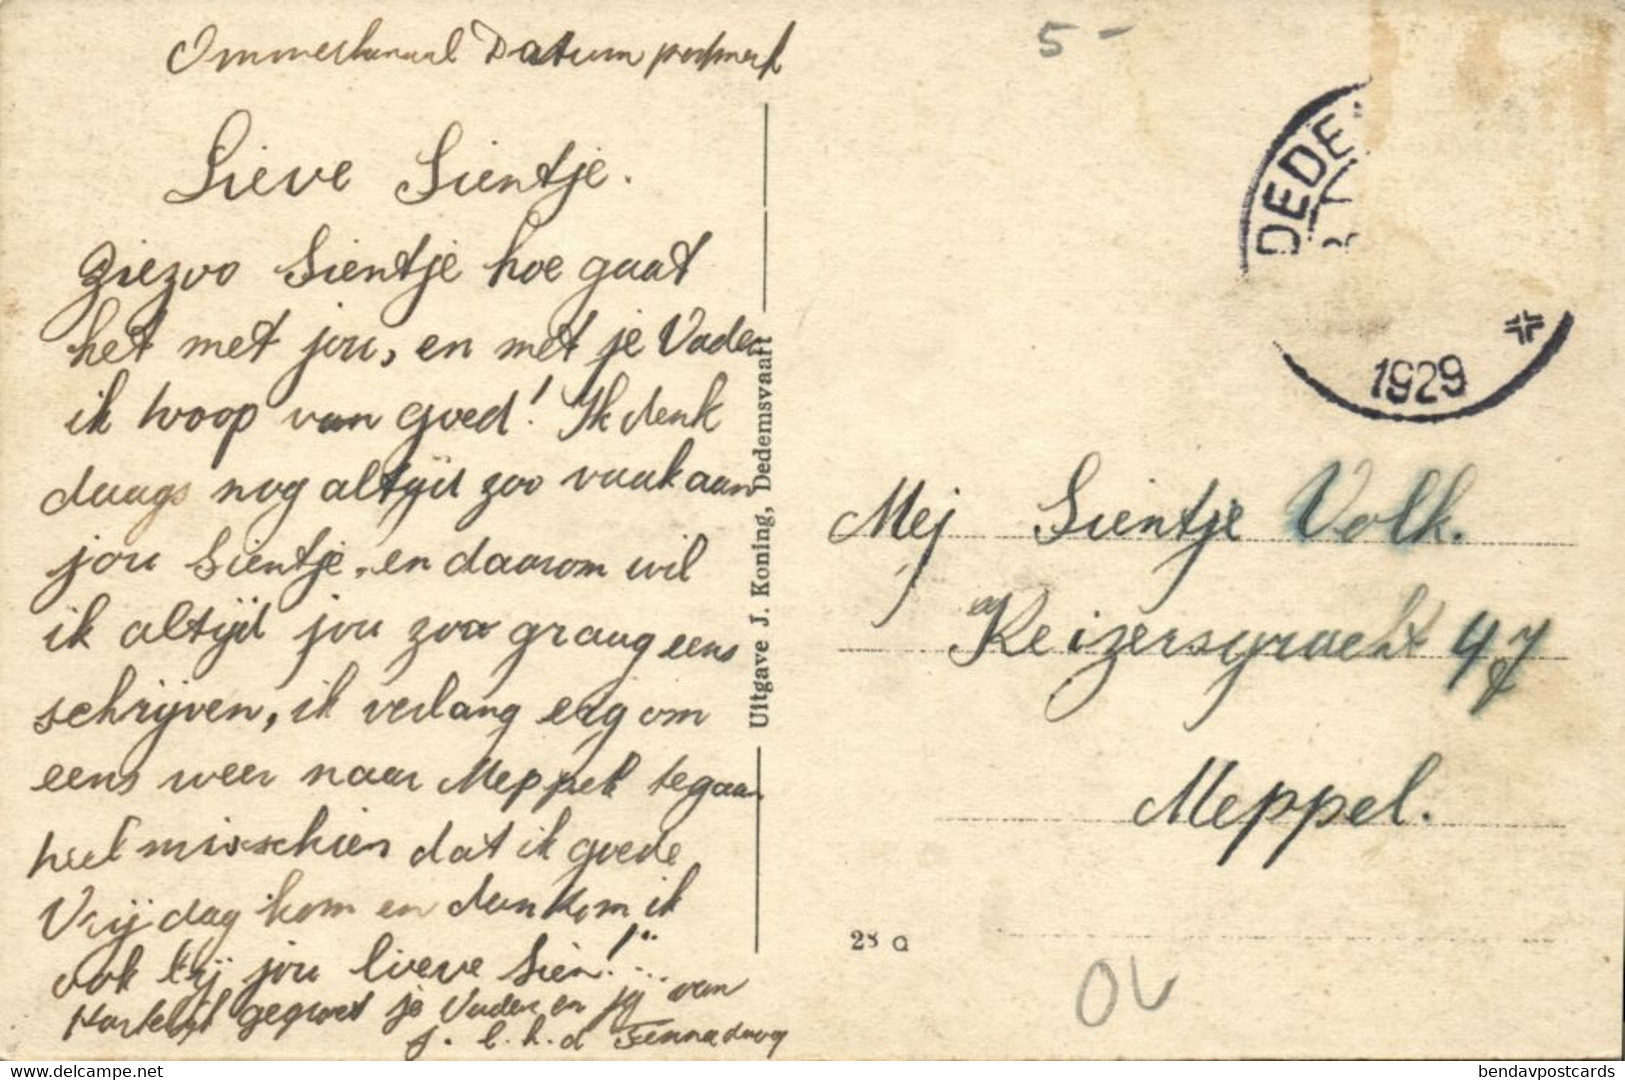 Ommerkanaal Datum postmerk
Lieve Sientje.
Ziezoo Sientje hoe gaat
het met jou, en met je Vader
ik hoop van goed! Ik denk
daags nog altijd zoo vaak aan
jou Sientje, en daarom wil
ik altijd jou zoo graag eens
schrijven, ik verlang erg om
eens weer naar Meppel te gaan
heel misschien dat ik goede
Vrijdag kom en dan kom ik
ook bij jou lieve Sien!
Hartelijk gegroet je Vader en jij van
j. l. h. d
Uitgave J. Koning, Dedemsvaart
5 -
DEDE
1929
Mej Sientje Volk.
Keizersgracht 47
Meppel.
28 a
OV
bendavpostcards